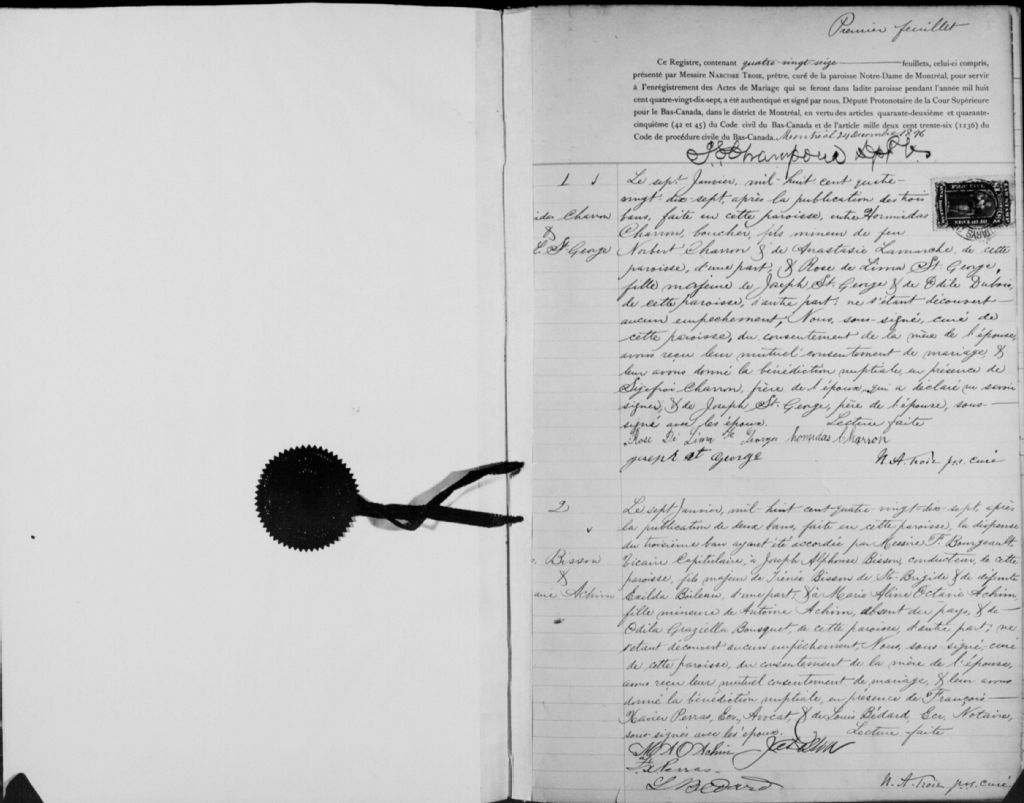 Premier feuillet
Ce Registre, contenant quatre-vingt-seize feuillets, celui-ci compris,
présenté par Messire Narcisse Troie, prêtre, curé de la paroisse Notre-Dame de Montréal, pour servir
à l'enrégistrement des Actes de Mariage qui se feront dans ladite paroisse pendant l'année mil huit
cent quatre-vingt-dix-sept, a été authentiqué et signé par nous, Député Protonotaire de la Cour Supérieure
pour le Bas-Canada, dans le district de Montréal, en vertu des articles quarante-deuxième et quarante-
cinquième (42 et 45) du Code civil du Bas-Canada et de l'article mille deux cent trente-six (1236) du
Code de procédure civile du Bas-Canada. Montréal 24 décembre 1896
1
Charron
&
St George
Le sept Janvier, mil-huit cent quatre-
vingt-dix sept, après la publication des trois
bans, faite en cette paroisse, entre Hormidas
Charron, boucher, fils mineur de feu
Norbert Charron & de Anastasie Lamarche, de cette
paroisse, d'une part; & Rose de Lima St. George,
fille majeure de Joseph St. George & de Odile Dubois,
de cette paroisse, d'autre part: ne s'étant découvert
aucun empêchement; Nous, sous-signé, curé de
cette paroisse, du consentement de la mère de l'épouse,
avons reçu leur mutuel consentement de mariage &
leur avons donné la bénédiction nuptiale, en présence de
Sigefroi Charron, frère de l'époux, qui a déclaré ne savoir
signer, & de Joseph St. George, père de l'épouse, sous-
signé avec les époux. Lecture faite
Rose De Lima St Georges hormidas Charron
joseph st george N. A. Troie ptr. curé
2
Bisson
&
Achim
Le sept Janvier, mil-huit cent-quatre-vingt-dix-sept, après
la publication de deux bans, faite en cette paroisse, la dispense
du troisième ban ayant été accordée par Messire F. Bourgeault
Vicaire Capitulaire, à Joseph Alphonse Bisson, conducteur, de cette
paroisse, fils majeur de Irénée Bisson de Ste-Brigide & de défunte
Exilda Boileau, d'une part; & à Marie Aline Octavie Achim,
fille mineure de Antoine Achim, absent du pays, & de
Odila Graziella Bousquet, de cette paroisse, d'autre part; ne
s'étant découvert aucun empêchement, Nous, sous signé, curé
de cette paroisse, du consentement de la mère de l'épouse,
avons reçu leur mutuel consentement de mariage, & leur avons
donné la bénédiction nuptiale, en présence de François-
Xavier Perras, Ecr, Avocat & de Louis Bédard, Ecr. Notaire,
sous-signés avec les époux. Lecture faite
M A O Achim
Fx Perras.
L Bédard N. A. Troie ptr. curé